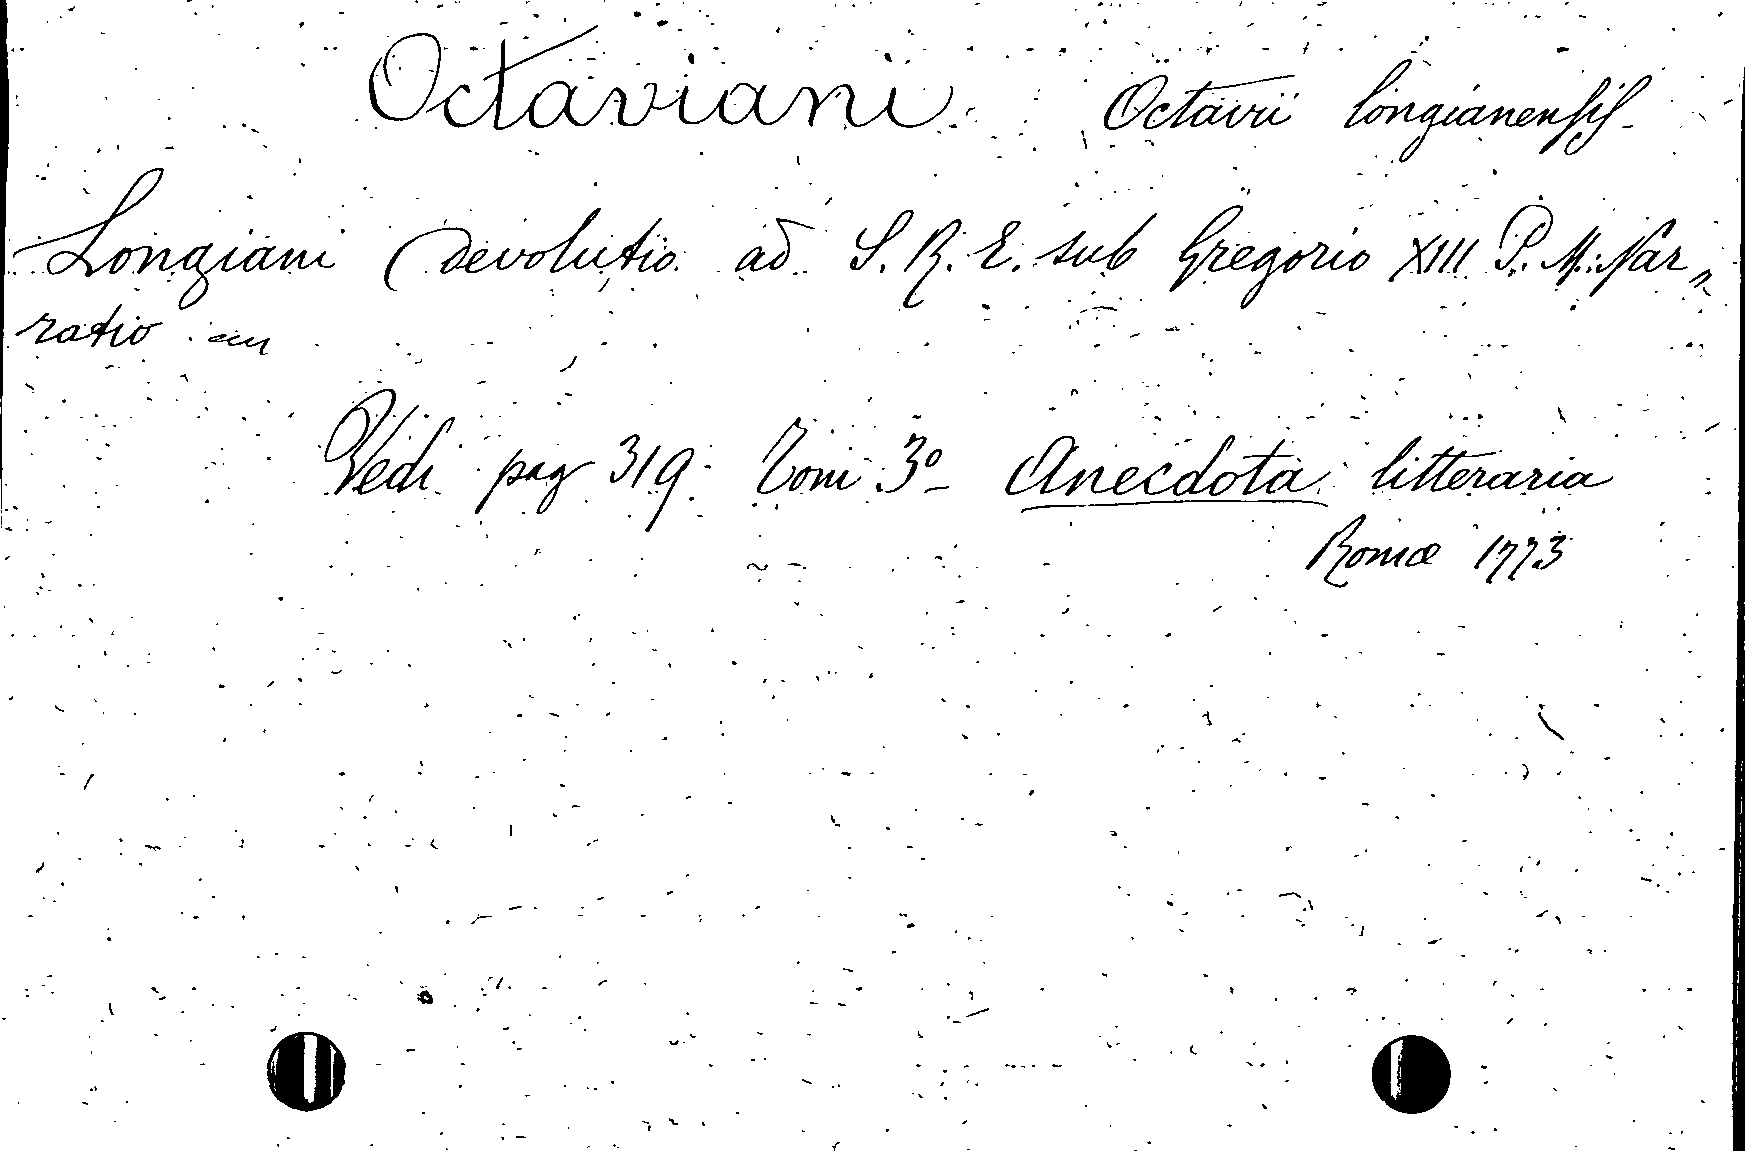 Octaviani Octavii longianensis
Longiani Devolutio ad S. R. E. sub Gregorio XIII P. M. Nar„
ratio
Vedi pag 319. Tom 3º Anecdota litteraria
Romæ 1773